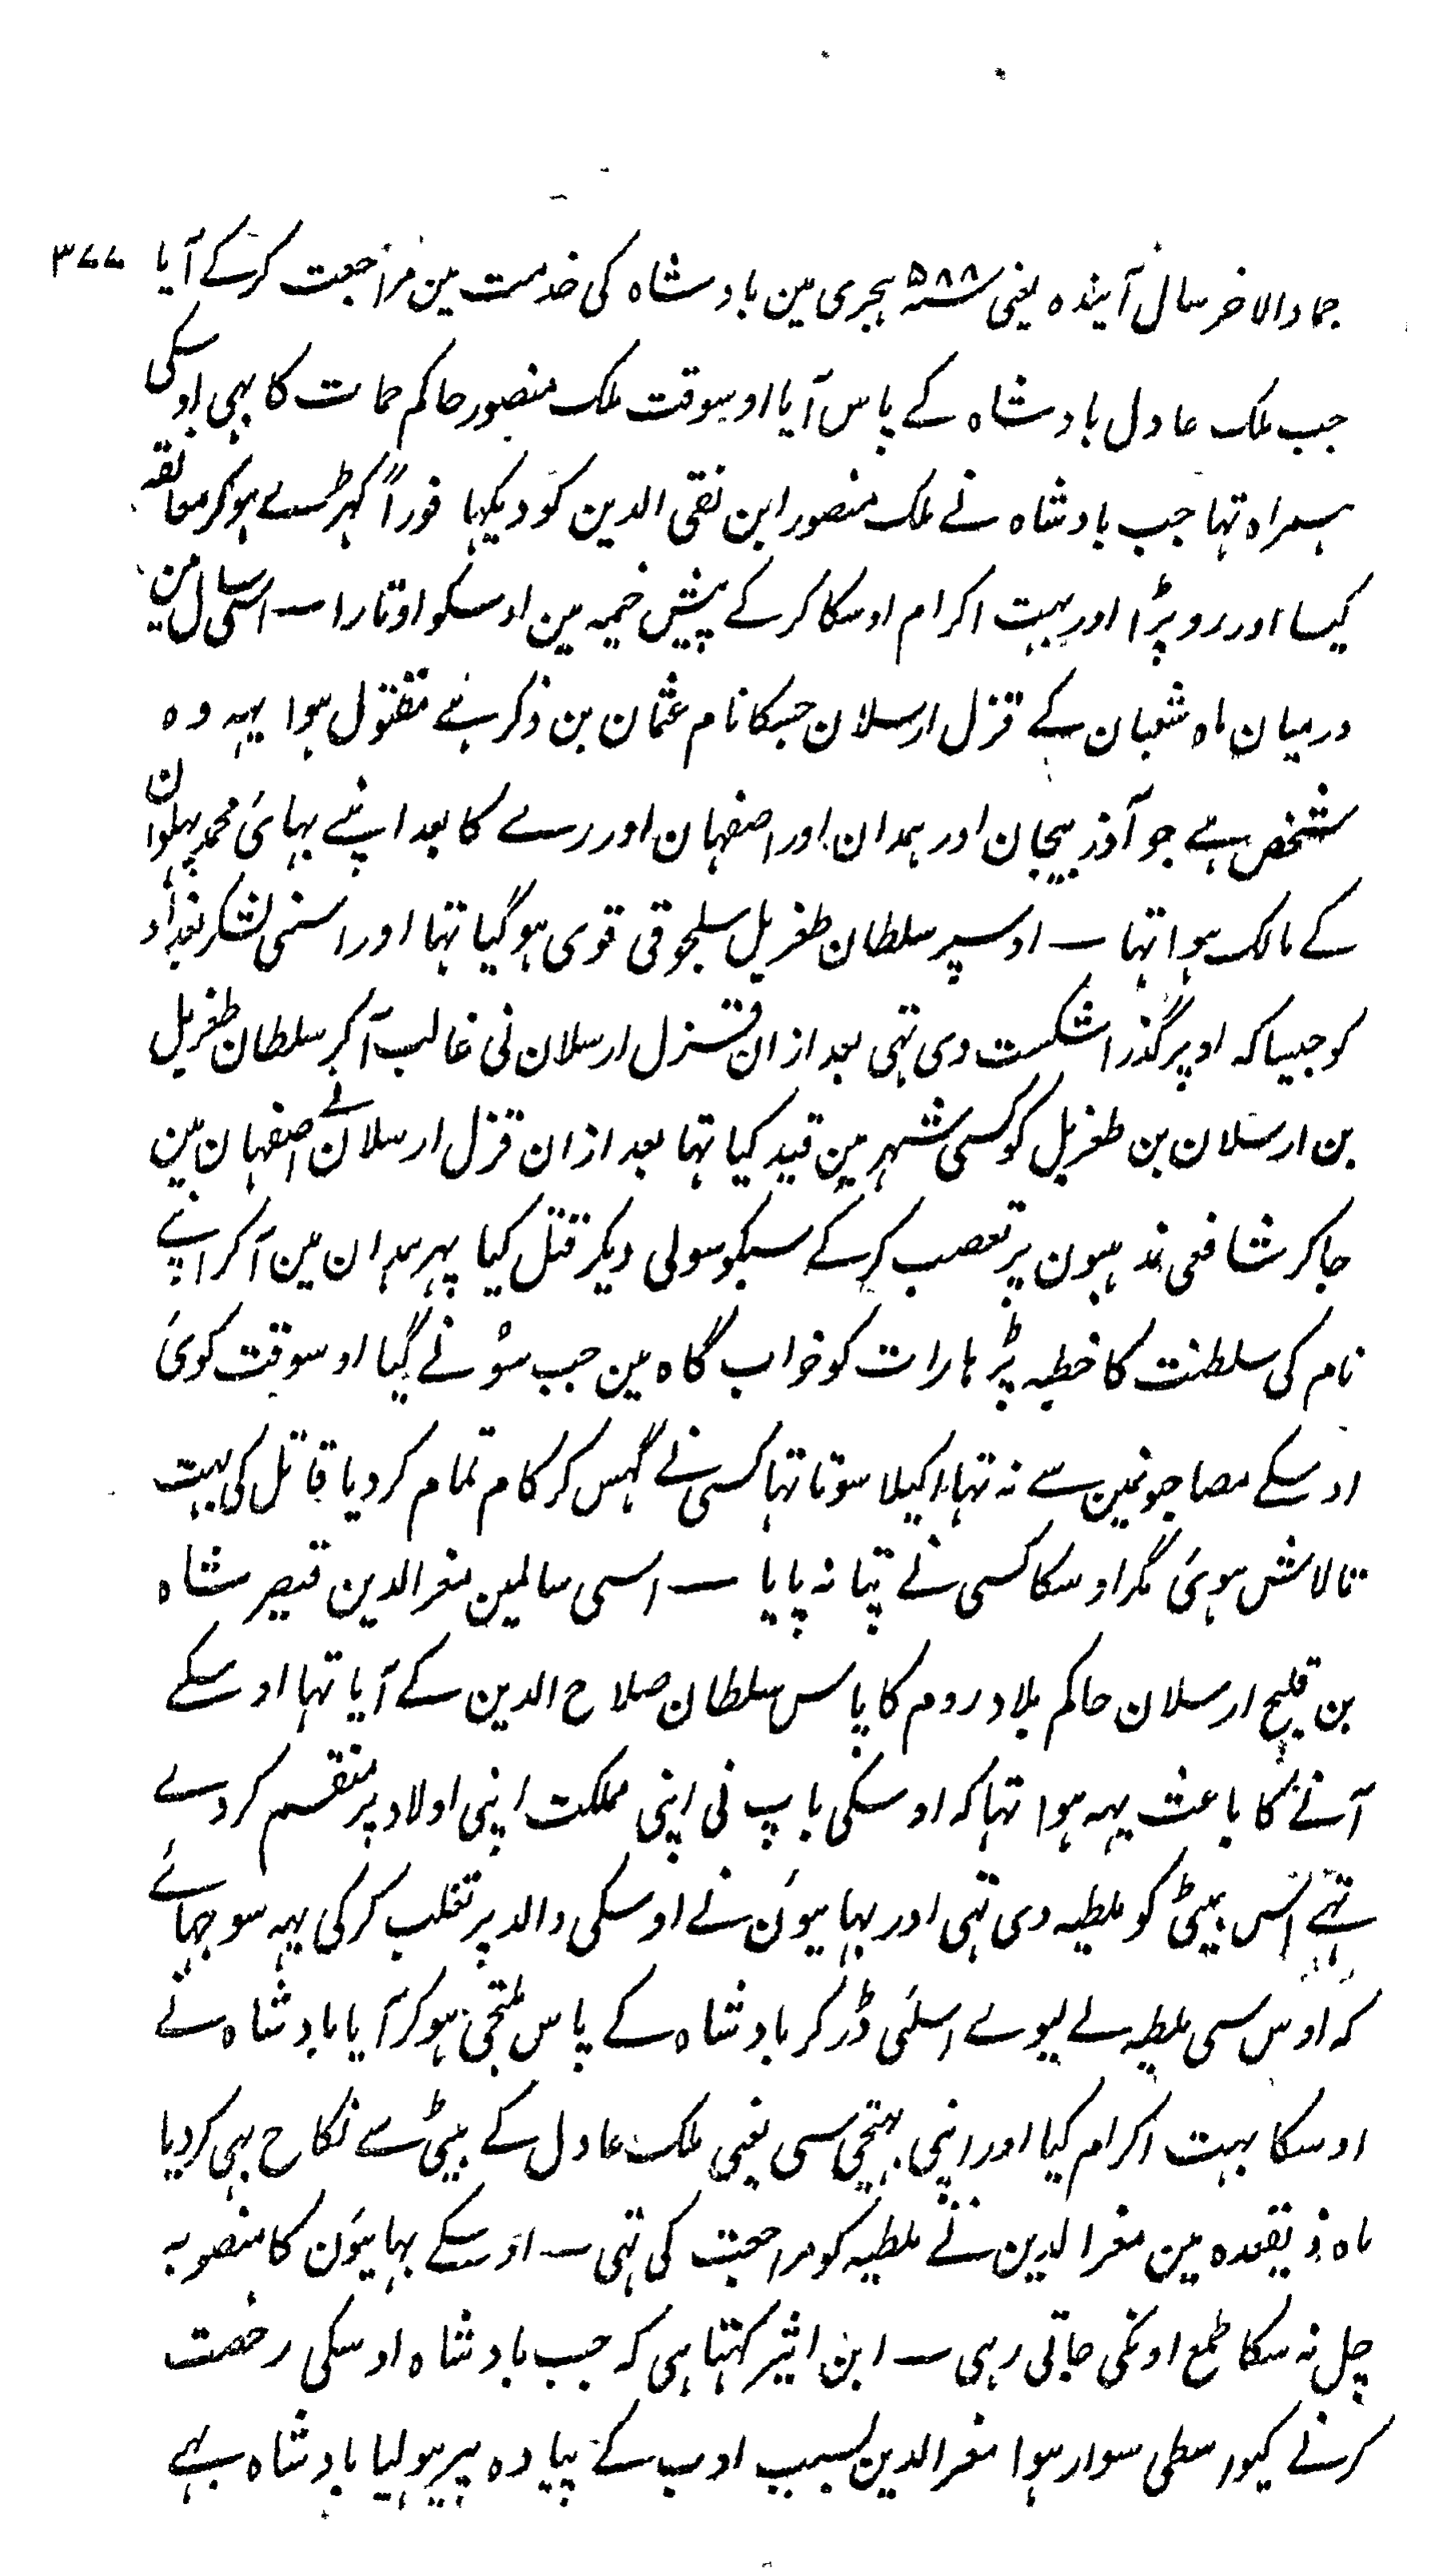 ۳۷۷
جمادالاخر سال آیندہ یعنی ۵۸۸ سنہ ہجری مین بادشاہ کی خدمت مین مراجعت کرکے آیا
جب ملک عادل بادشاہ کے پاس آیا اوسوقت ملک منصور حاکم حمات کا بہی اوسکی
ہمراہ تہا جب بادشاہ نے ملک منصور ابن تقی الدین کو دیکہا فوراً کہڑے ہوکر معانقہ
کیسا اور رو پڑا اور بہت اکرام اوسکا کرکے پیش خیمہ مین اوسکو اوتارا ــ اسی سال مین
درمیان ماہ شعبان کے قزل ارسلان جسکا نام عثمان بن ذکر ہے مقتول ہوا یہہ وہ
شخص ہے جو آذربیجان اور ہمدان اور اصفہان اور رے کا بعد اپنے بہائی محمد پہلوان
کے مالک ہوا تہا ــ اوسپر سلطان طغریل سلجوقی قوی ہوگیا تہا اور اسنی لشکر بغداد
کو جیسا کہ اوپر گذرا شکست دی تہی بعد ازان قزل ارسلان نی غالب آکر سلطان طغریل
بن ارسلان بن طغریل کو کسی شہر مین قید کیا تہا بعد ازان قزل ارسلان نے اصفہان مین
جاکر شافعی مذہبون پر تعصب کرکے سبکو سولی دیکر قتل کیا پہر ہمدان مین آکر اپنے
نام کی سلطنت کا خطبہ پڑہا رات کو خواب گاہ مین جب سونے گیا اوسوقت کوئی
اوسکے مصاحبونمین سے نہ تہا اکیلا سوتا تہا کسی نے گہس کر کام تمام کر دیا قاتل کی بہت
تالاش ہوئی مگر اوسکا کسی نے پتا نہ پایا ــ اسی سالمین معزالدین قیصر شاہ
بن قلیج ارسلان حاکم بلاد روم کا پاس سلطان صلاح الدین کے آیا تہا اوسکے
آنے کا باعث یہہ ہوا تہا کہ اوسکی باپ نی اپنی مملکت اپنی اولاد پر منقسم کردے
تہے اس بیٹی کو ملطیہ دی تہی اور بہائیون نے اوسکی والد پر تغلب کرکی یہہ سوجہائے
کہ اوس سی ملطیہ لے لیوے اسلئی ڈر کر بادشاہ کے پاس ملتجی ہوکر آیا بادشاہ نے
اوسکا بہت اکرام کیا اور اپنی بہتیجی سی یعنی ملک عادل کے بیٹی سے نکاح بہی کردیا
ماہ ذیقعدہ مین معزالدین نے ملطیہ کو مراجعت کی تہی ــ اوسکے بہائیون کا منصوبہ
چل نہ سکا طمع اونکی جاتی رہی ــ ابن اثیر کہتا ہی کہ جب بادشاہ اوسکی رخصت
کرنے کیواسطی سوار ہوا معزالدین بسبب ادب کے پیادہ پیر ہولیا بادشاہ بہے